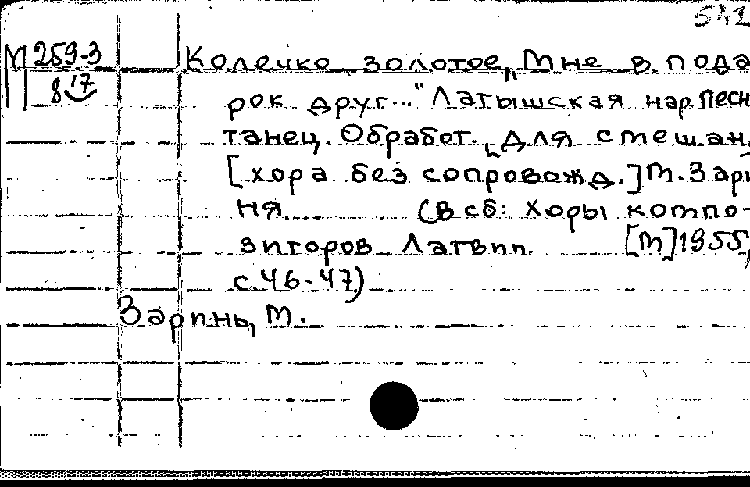 541
М 259-3
8 17
Колечко золотое, „Мне в пода
рок друг..." Латышская нар. песн
танец. Обработ. для смешан.
[хора без сопровожд.] М. Зари
ня (В сб: Хоры компо-
зиторов Латвии [М] 1955,
с. 46-47)
Заринь, М.